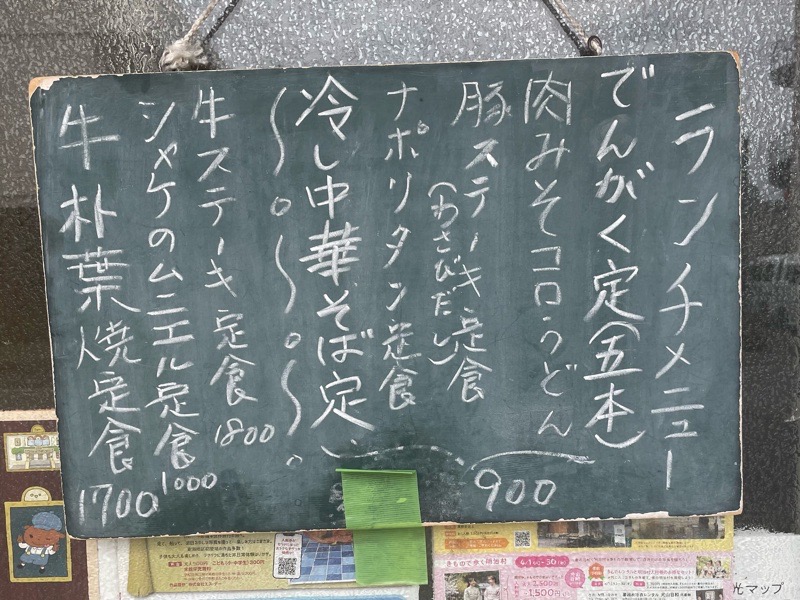 ランチメニュー
でんがく定(五本)
肉みそコロうどん
豚ステーキ定食
(わさびだし)
ナポリタン定食
冷し中華そば定
900
牛ステーキ定食
1800
シャケのムニエル定食
1000
牛朴葉焼定食
1700
きもので歩く明治村
光マップ